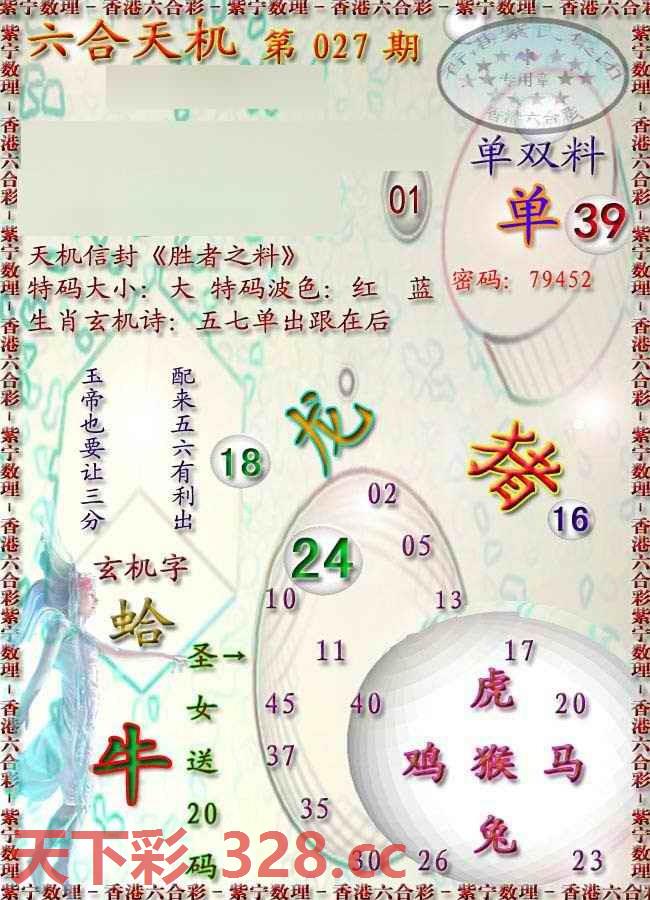 紫宁数理－香港六合彩－紫宁数理－香港六合彩－紫宁数理－香港六合彩
六合天机 第 027 期
专用章
香港六合彩
单双料
01
单 39
天机信封《胜者之料》
特码大小：大 特码波色：红 蓝
密码：79452
生肖玄机诗：五七单出跟在后
玉帝也要让三分
配来五六有利出
龙
18
猪
16
02
24
05
玄机字
10
13
蛤
圣女送20码
→
11
17
虎
45
40
20
牛
37
鸡 猴 马
35
兔
30
26
23
天下彩.328.cc
紫宁数理－香港六合彩－紫宁数理－香港六合彩－紫宁数理－香港六合彩